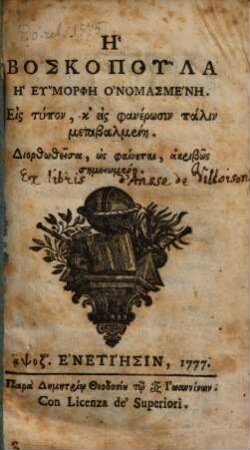 Ἡ
ΒΟΣΚΟΠΟΥ'ΛΑ
Ἡ ΕΥ'ΜΟΡΦΗ Ο'ΝΟΜΑΣΜΕ'ΝΗ.
Εἰς τύπον, κ' εἰς φανέρωσιν πάλιν
μεταβαλμένη.
Διορθωθεῖσα, ὡς φαίνεται, ἀκριβῶς
σημειωμένη.
Ex libris d'Ansse de Villoison
͵αψοζ. Ε'ΝΕΤΙ'ΗΣΙΝ, 1777.
Παρὰ Δημητρίῳ Θεοδοσίου τῷ ἐξ Ἰωαννίνων.
Con Licenza de' Superiori.